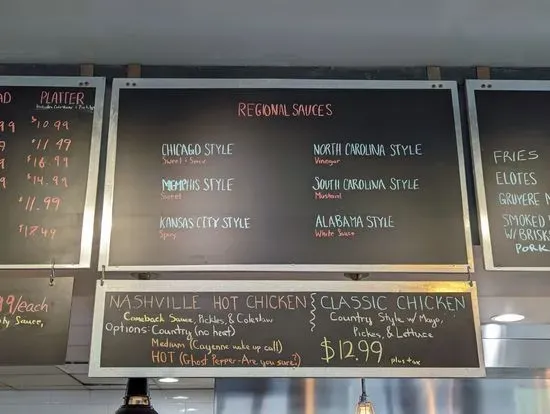 AD PLATTER
$10.99
$11.49
$16.99
$14.99
$11.99
$12.49
REGIONAL SAUCES
CHICAGO STYLE
Sweet & Sour
MEMPHIS STYLE
Sweet
KANSAS CITY STYLE
Spicy
NORTH CAROLINA STYLE
Vinegar
SOUTH CAROLINA STYLE
Mustard
ALABAMA STYLE
White Sauce
FRIES
ELOTES
GRUYERE M
SMOKED
W/ BRISK
PORK
99/each
Sauce,
NASHVILLE HOT CHICKEN
Comeback Sauce, Pickles & Coleslaw
Options: Country (no heat)
Medium (Cayenne wake up call)
HOT (Ghost Pepper-Are you sure?)
CLASSIC CHICKEN
Country Style w/ Mayo,
Pickes, & Lettuce
$12.99 plus tax